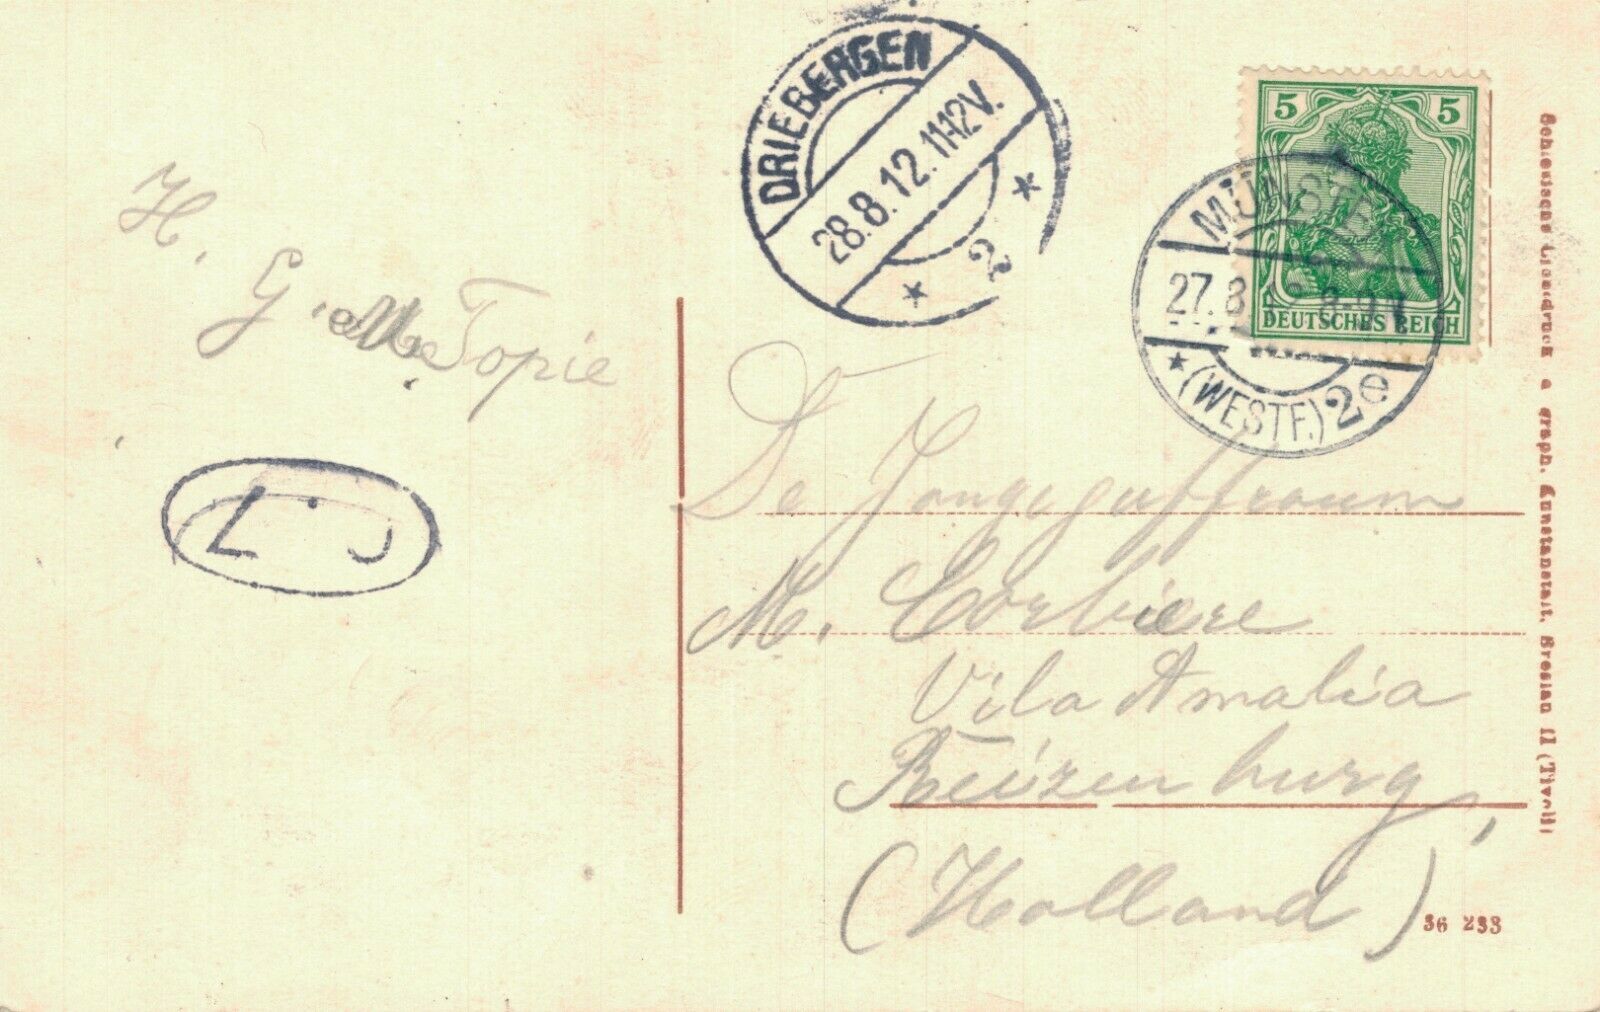 DRIEBERGEN
28.8.12.11-12V.
* 2 *
5 5
DEUTSCHES REICH
MÜNSTER
27.8 8-9V
* (WESTF.) 2e
H.
G. en
Topie
L. J
De Jongejuffrouw
M. Corbiere
Vila Amalia
Reizenburg,
(Holland)
36 233
Schlesische Lichtdruck- u. graph. Kunstanstalt, Breslau II (Tivoli)